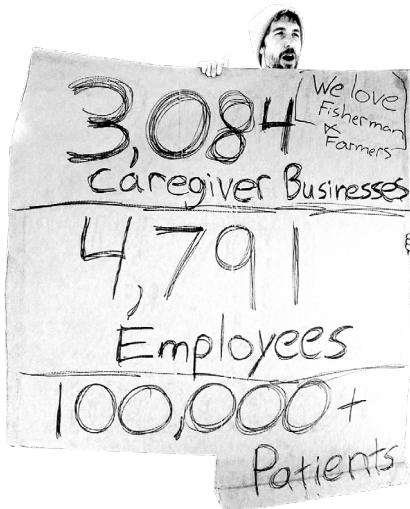 3,084
We love
Fisherman
&
Farmers
Caregiver Businesses
4,791
Employees
100,000+
Patients